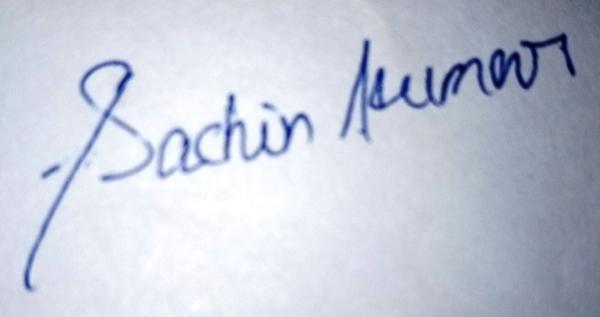 Sachin Kumar